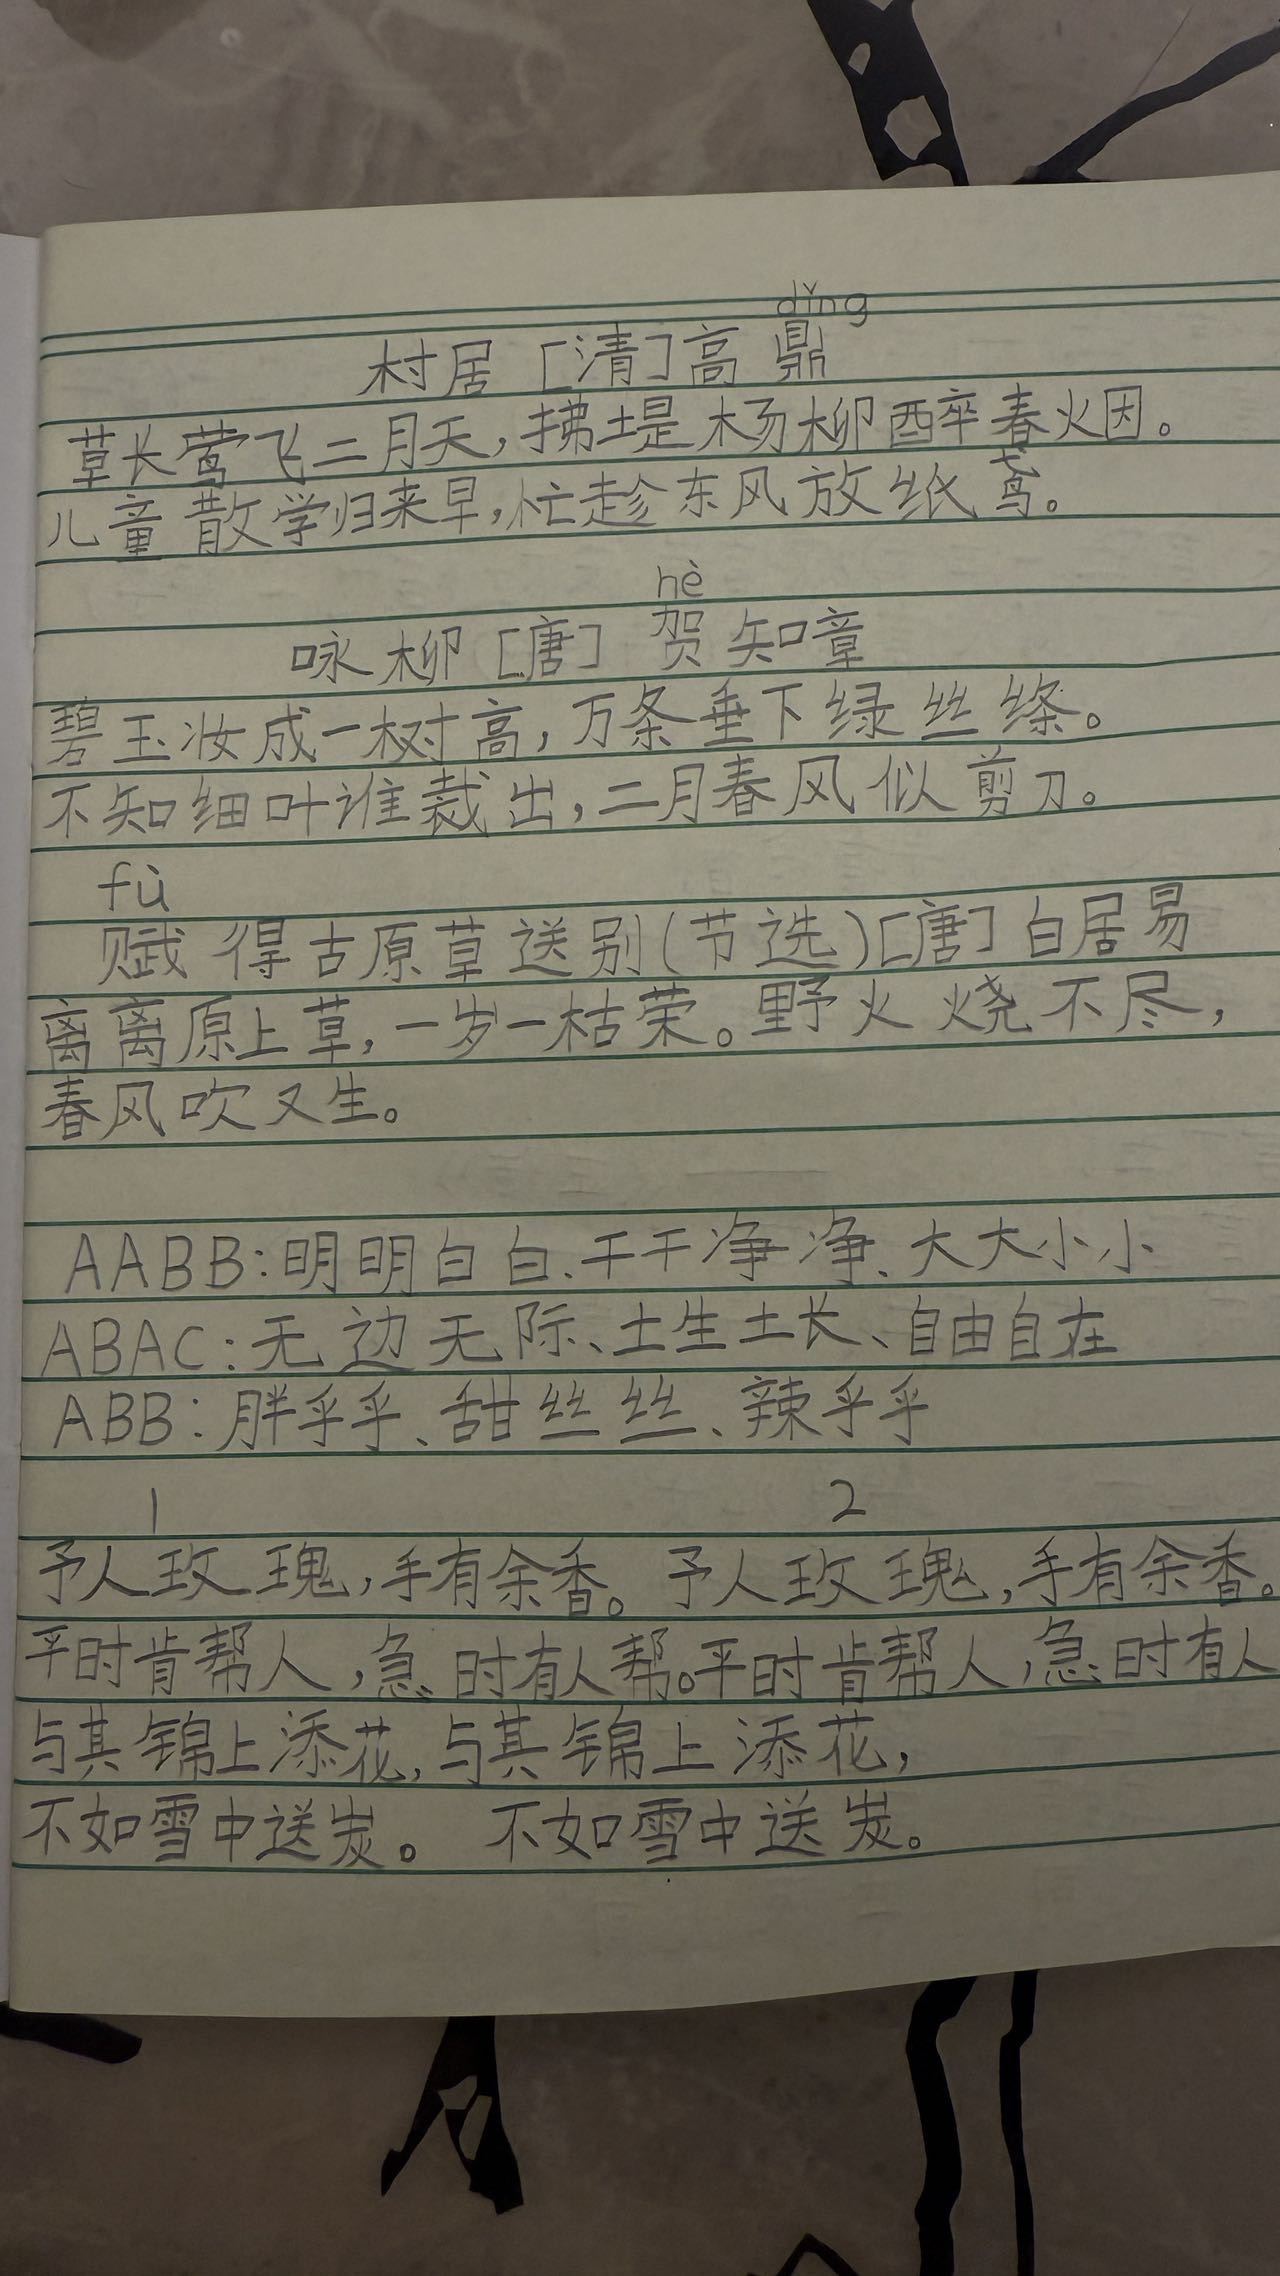 dǐng
村居 [清]高鼎
草长莺飞二月天,拂堤杨柳醉春烟。
儿童散学归来早,忙趁东风放纸鸢。
hè
咏柳[唐] 贺知章
碧玉妆成一树高,万条垂下绿丝绦。
不知细叶谁裁出,二月春风似剪刀。
fù
赋得古原草送别(节选)[唐]白居易
离离原上草,一岁一枯荣。野火烧不尽,
春风吹又生。
AABB:明明白白、干干净净、大大小小
ABAC:无边无际、土生土长、自由自在
ABB:胖乎乎、甜丝丝、辣乎乎
1 2
予人玫瑰,手有余香。予人玫瑰,手有余香。
平时肯帮人,急时有人帮。平时肯帮人,急时有人
与其锦上添花,与其锦上添花,
不如雪中送炭。 不如雪中送炭。